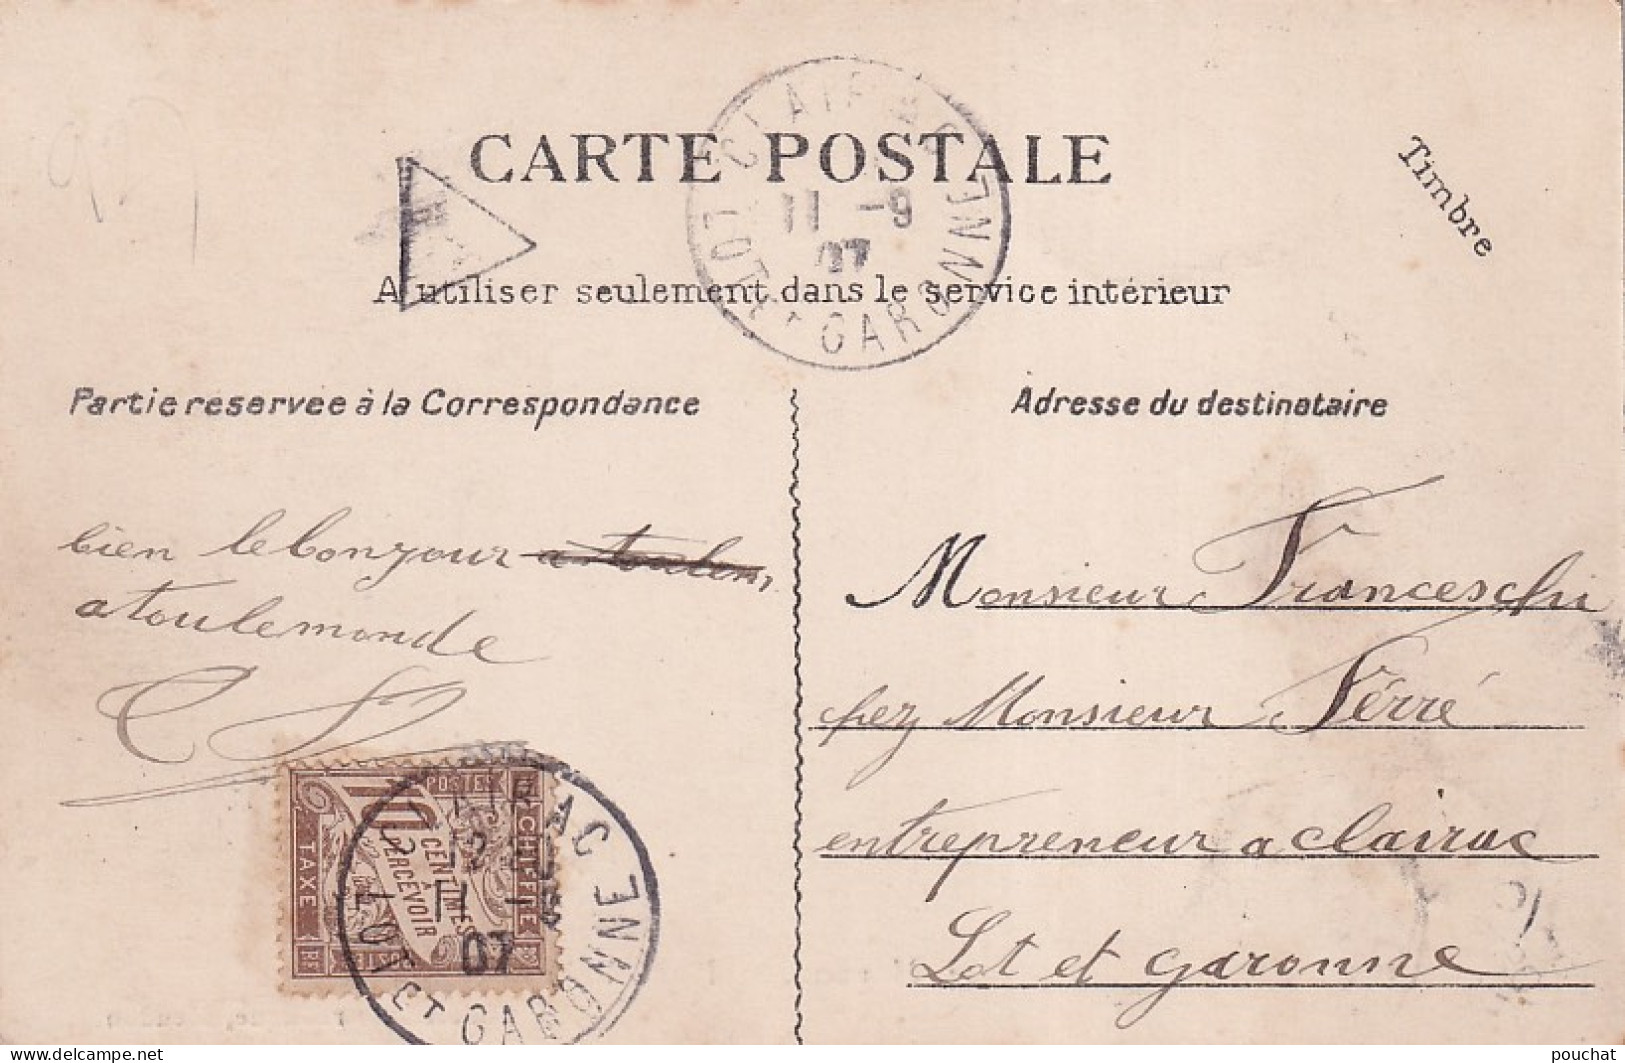 CARTE POSTALE
Timbre
A utiliser seulement dans le service intérieur
CLAIRAC
11 -9
07
LOT ET GARONNE
Partie reservee à la Correspondance
Adresse du destinataire
bien le bonjour a toulem,
a toulemonde
Monsieur Franceschi
chez Monsieur Férré
entrepreneur a clairac
Lot et garonne
POSTES
10
CENTIMES
À
PERCEVOIR
CHIFFRE
TAXE
RF
CLAIRAC
11 -9
07
LOT ET GARONNE
delcampe.net
pouchat